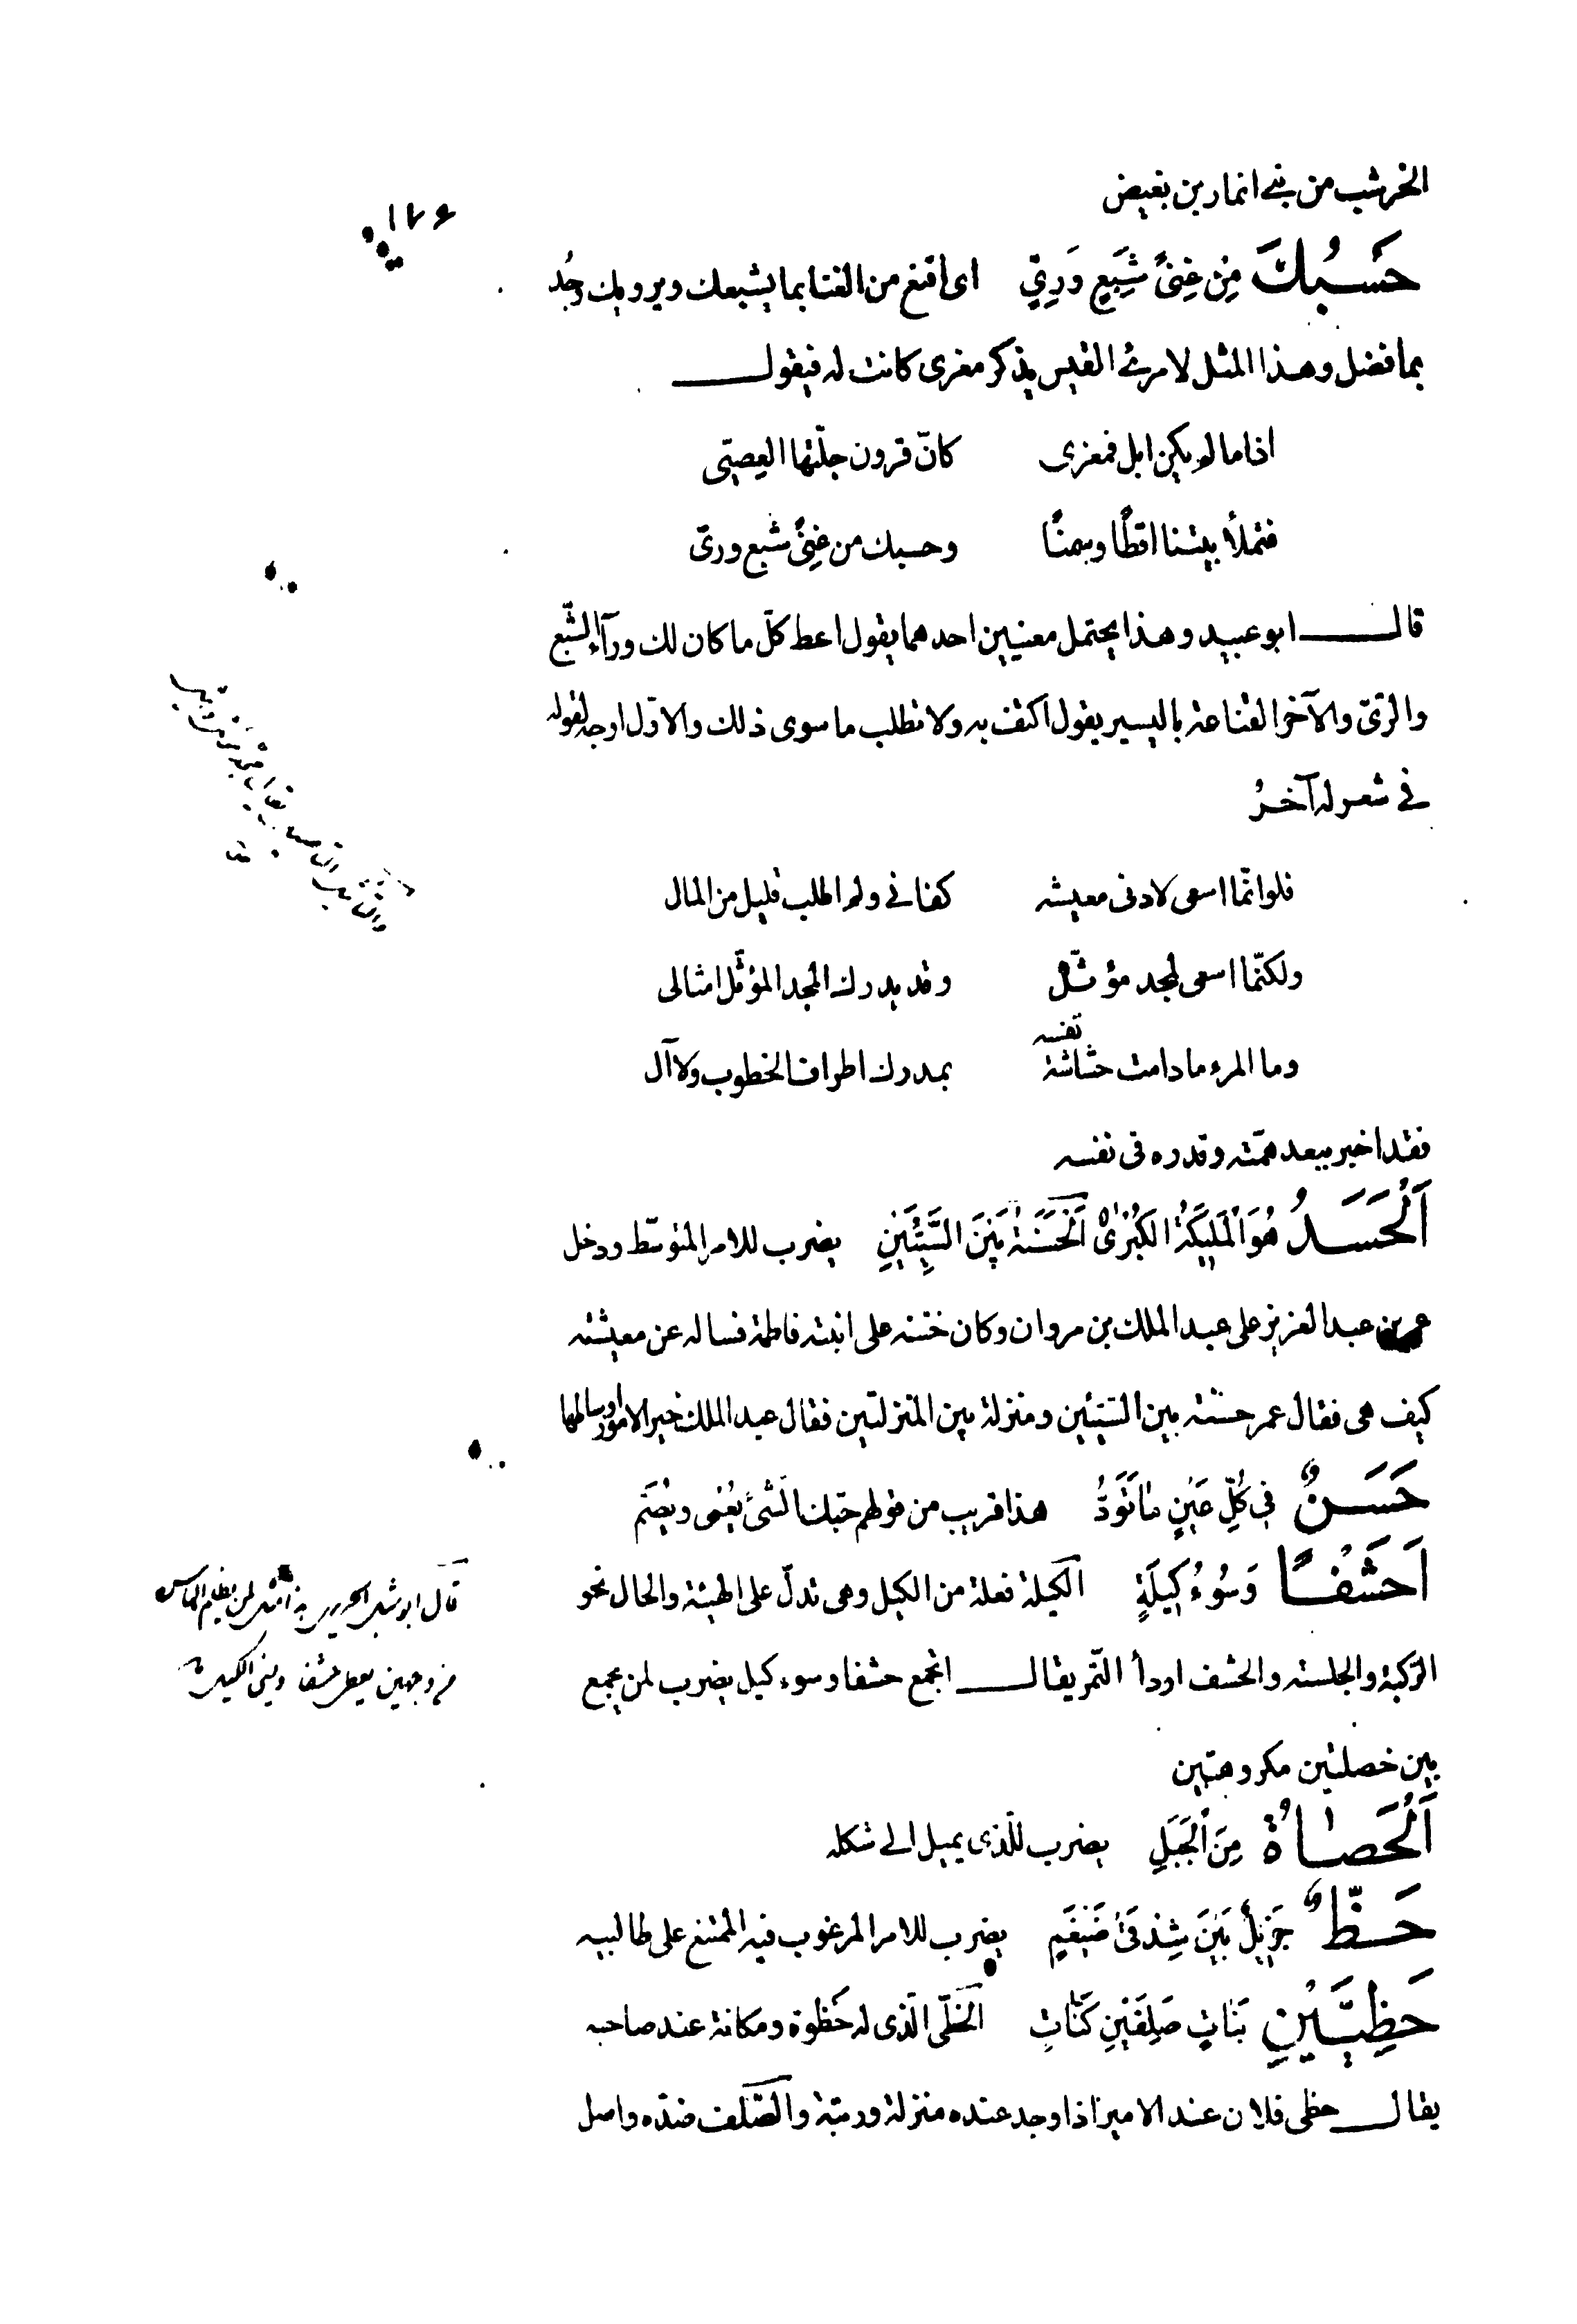 الخرشب من بني انمار بن بغيض
١٧٤
حَسْبُكَ مِنْ غِنىً شِبَعٍ وَرِيٍّ اى اقنع من الغنا بما يشبعك ويرويك وجُد
بما فضل وهذا المثل لامرئ القيس يذكر معزى كانت له فيقول
اذا ما لم يكن ابل فمعزى كانّ قرون جلّتها العصىّ
فتملأ بيتنا اقطًا وسمنًا وحسبك من غنىً شبع ورىّ
قال ابو عبيد وهذا يحتمل معنيين احدهما يقول اعط كلّ ما كان لك ورآء الشّبع
والرّىّ والآخر القناعة باليسير يقول اكتف به ولا تطلب ما سوى ذلك والاوّل اوجه لقوله
في شعر له آخرُ
فلو انّما اسعى لادنى معيشه كفانى ولم اطلب قليل من المال
ولكنّما اسعى لمجد مؤثّل وقد يدرك المجد المؤثّل امثالى
وما المرء ما دامت حشاشة نفسه بمدرك اطراف الخطوب ولا آل
فقد اخبر ببعد همّته وقدره فى نفسه
اَلْحَسَدُ هُوَ الْمَلِيكَةُ الكُبْرىٰ اَلْحَسَنَةُ بَيْنَ السَّيِّئَيْنِ يضرب للامر المتوسّط ودخل
عمر بن عبد العزيز على عبد الملك بن مروان وكان ختنه على ابنته فاطمة فساله عن معيشته
كيف هى فقال عمر حسنة بين السّيّئين ومنزلة بين المنزلتين فقال عبد الملك خير الامور اوسالطها
حَسَنٌ فِي كُلِّ عَيْنٍ مَا تَوَدُّ هذا قريب من قولهم حبّك الشّئ يُعمى ويُصَمّ
اَحَشَفًا وَسُوءَ كِيلَةٍ الكيلة فعلة من الكيل وهى تدلّ على الهيئة والحال نحو
الرّكبة والجلسة والحشف اردأ التّمر يقال اتجمع حشفا وسوء كيل يضرب لمن يجمع
قال ابو شبل
من وجهين يعطى حشفا
بين خصلتين مكروهتين
اَلْحَصَاةُ مِنَ الْجَبَلِ يضرب للّذى يميل الى شكله
حَظٌّ جَزِيلٌ بَيْنَ شِدْقَىْ ضَيْغَمٍ يضرب للامر المرغوب فيه الممتنع على طالبيه
حَظِيَّيْنِ بَنَاتٍ صَلِفَيْنِ كَنَّاتٍ الحَظىّ الّذى له حَظوة ومكانة عند صاحبه
يقال حظى فلان عند الامير اذا وجد عنده منزلة ورتبة والصّلف ضدّه واصل